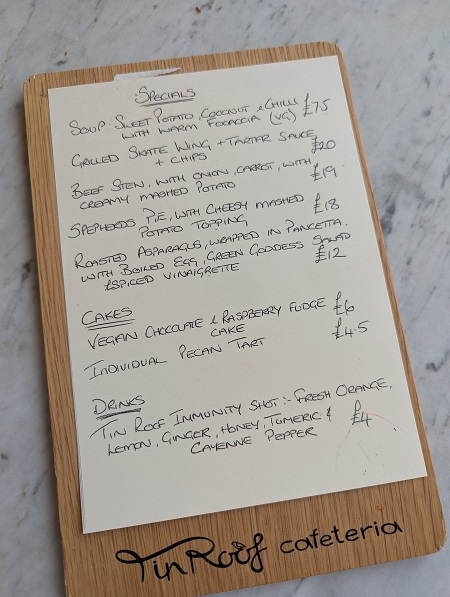 SPECIALS
SOUP: SWEET POTATO, COCONUT & CHILLI £7.5
WITH WARM FOCACCIA (VG)
GRILLED SKATE WING + TARTAR SAUCE £20
+ CHIPS
BEEF STEW, WITH ONION, CARROT, WITH £19
CREAMY MASHED POTATO
SPEPHERDS PIE, WITH CHEESY MASHED £18
POTATO TOPPING
ROASTED ASPARAGUS, WRAPPED IN PANCETTA.
WITH BOILED EGG, GREEN GODDESS SALAD
& SPICED VINAIGRETTE £12
CAKES
VEGAN CHOCOLATE & RASPBERRY FUDGE £6
CAKE
INDIVIDUAL PECAN TART £4.5
DRINKS
TIN ROOF IMMUNITY SHOT:- FRESH ORANGE,
LEMON, GINGER, HONEY, TUMERIC & £4
CAYENNE PEPPER
Tin Roof cafeteria